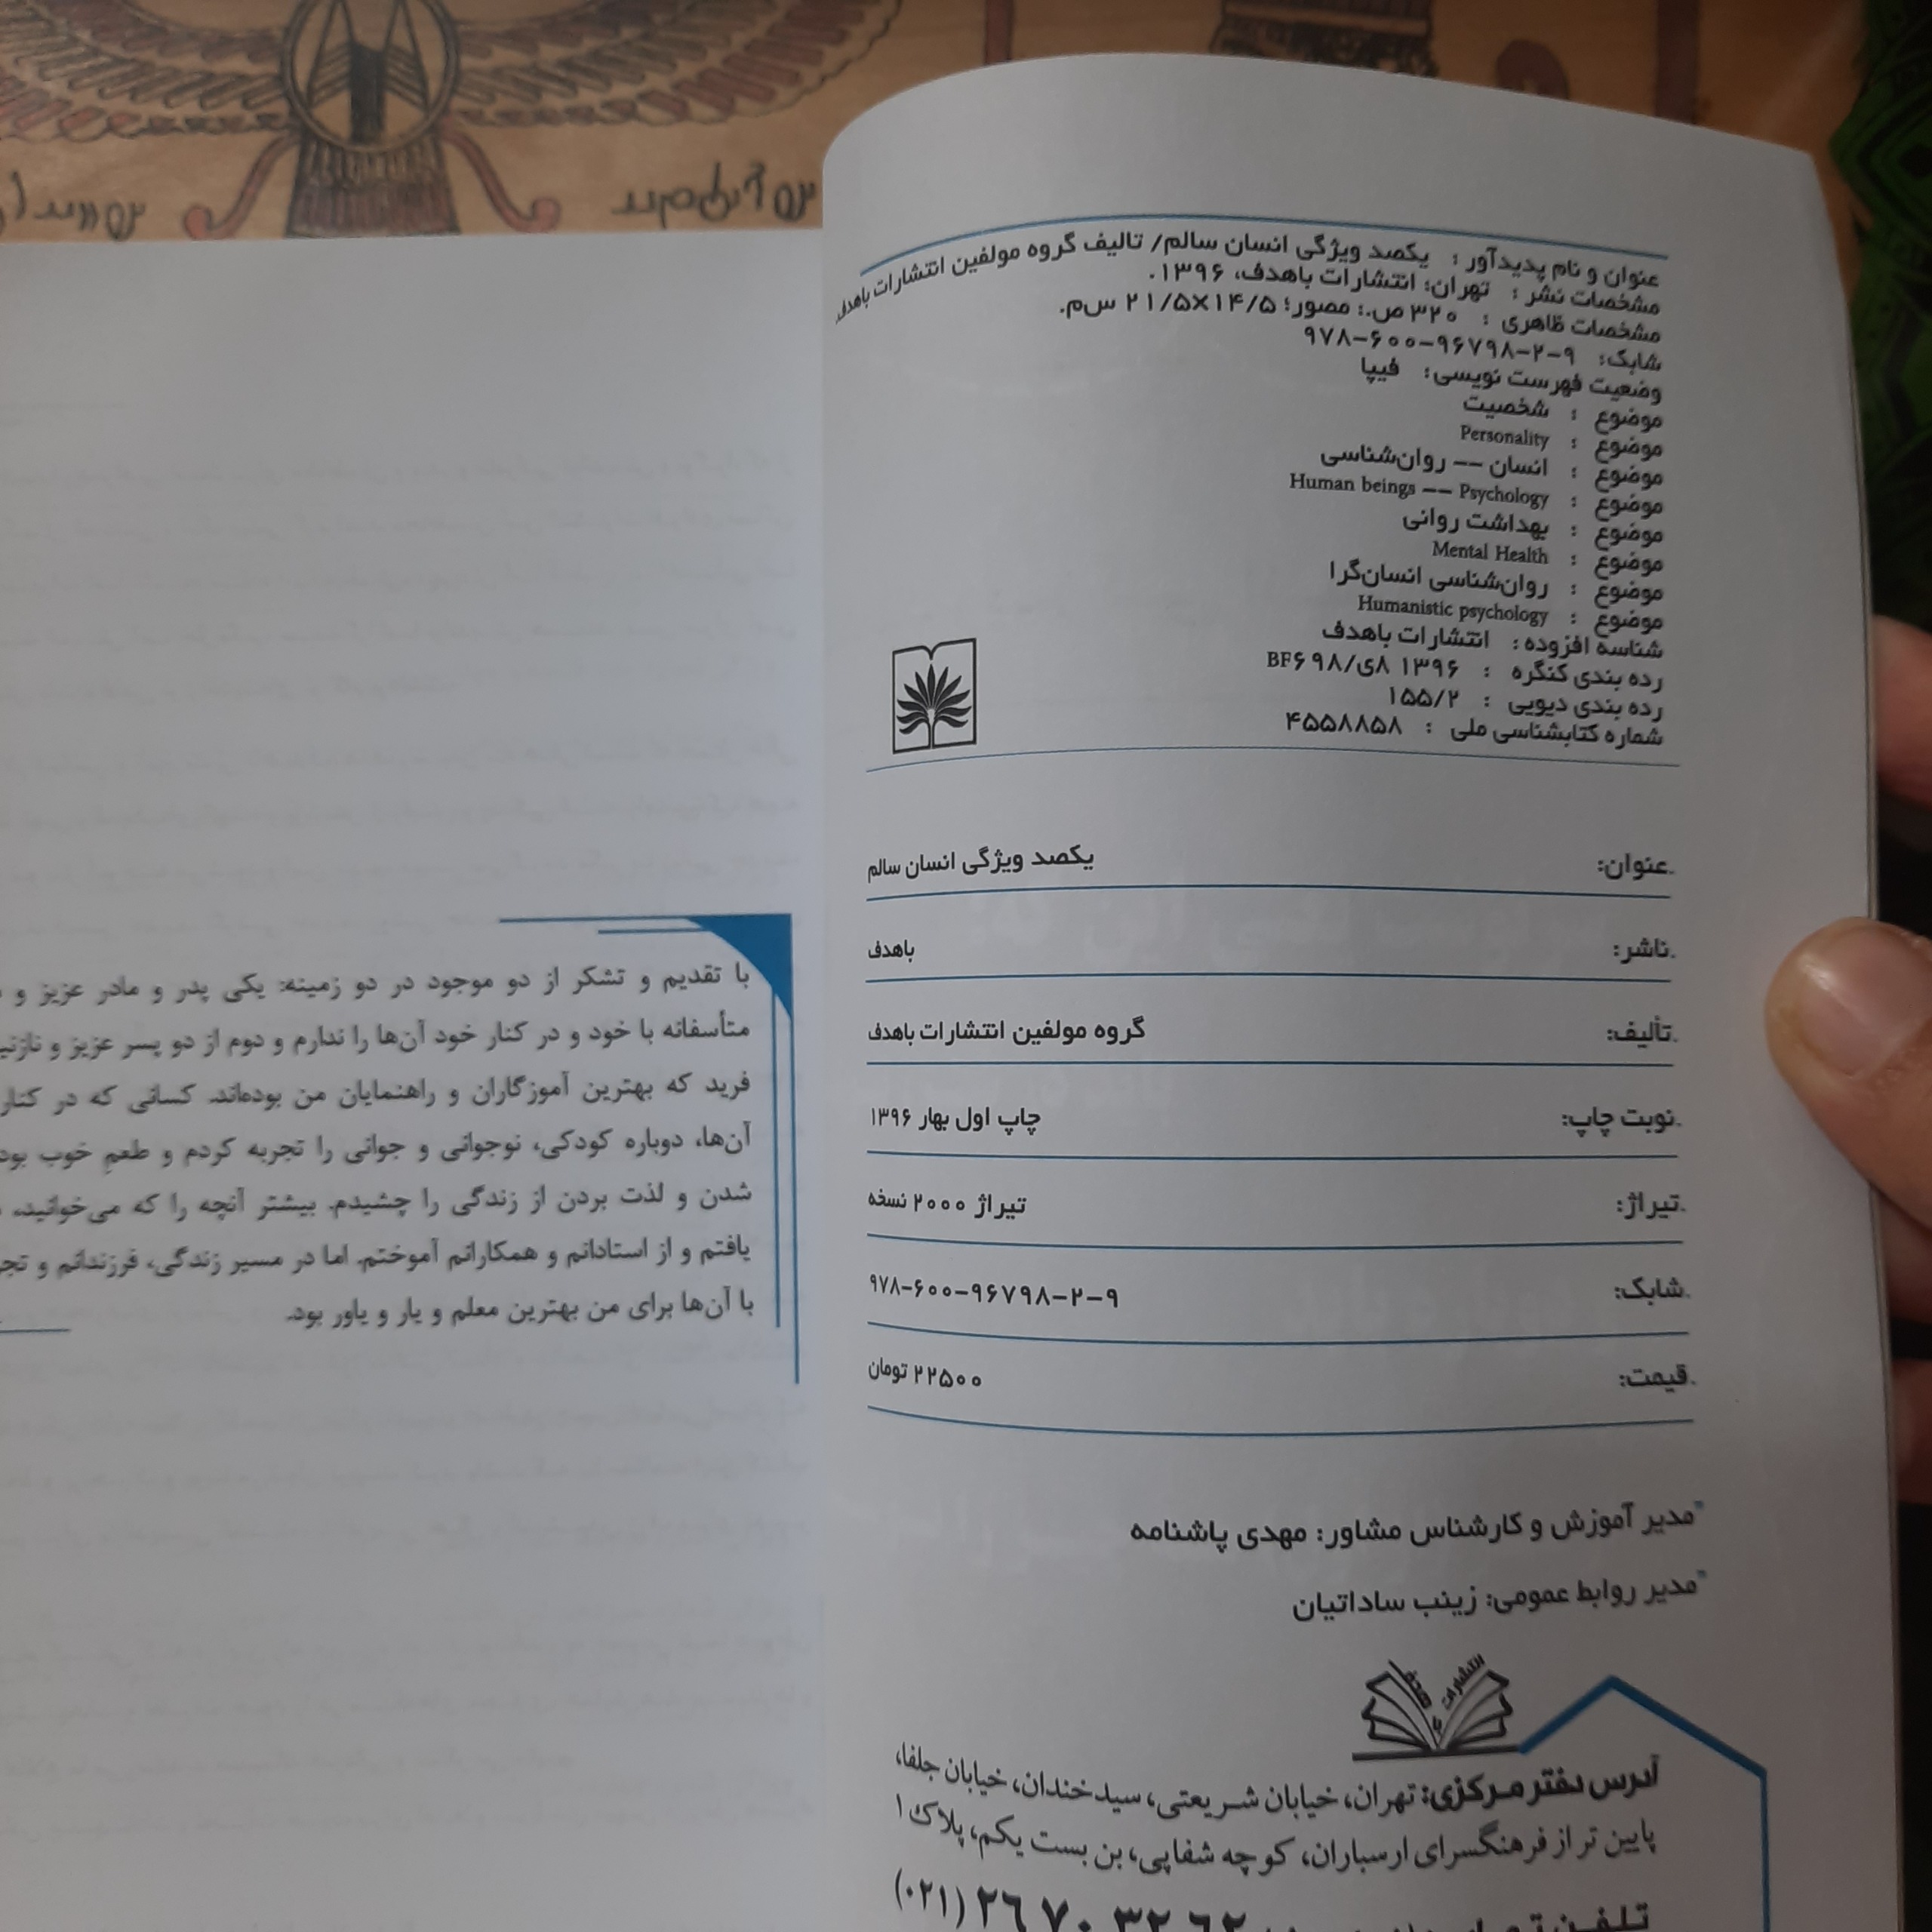 عنوان و نام پدیدآور : یکصد ویژگی انسان سالم/ تالیف گروه مولفین انتشارات باهدف
مشخصات نشر : تهران: انتشارات باهدف، ۱۳۹۶.
مشخصات ظاهری : ۳۲۰ ص.: مصور؛ ۲۱/۵×۱۴/۵ س‌م.
شابک: ۹۷۸-۶۰۰-۹۶۷۹۸-۲-۹
وضعیت فهرست نویسی: فیپا
موضوع : شخصیت
موضوع : Personality
موضوع : انسان -- روان‌شناسی
موضوع : Human beings -- Psychology
موضوع : بهداشت روانی
موضوع : Mental Health
موضوع : روان‌شناسی انسان‌گرا
موضوع : Humanistic psychology
شناسه افزوده: انتشارات باهدف
رده بندی کنگره : ۱۳۹۶ ۸ی/BF۶۹۸
رده بندی دیویی : ۱۵۵/۲
شماره کتابشناسی ملی : ۴۵۵۸۸۵۸
عنوان: یکصد ویژگی انسان سالم
ناشر: باهدف
تألیف: گروه مولفین انتشارات باهدف
نوبت چاپ: چاپ اول بهار ۱۳۹۶
تیراژ: تیراژ ۲۰۰۰ نسخه
شابک: ۹۷۸-۶۰۰-۹۶۷۹۸-۲-۹
قیمت: ۲۲۵۰۰ تومان
مدیر آموزش و کارشناس مشاور: مهدی پاشنامه
مدیر روابط عمومی: زینب ساداتیان
انتشارات با هدف
آدرس دفتر مرکزی: تهران، خیابان شریعتی، سیدخندان، خیابان جلفا،
پایین تر از فرهنگسرای ارسباران، کوچه شفاپی، بن بست یکم، پلاک ۱
(۰۲۱)
با تقدیم و تشکر از دو موجود در دو زمینه: یکی پدر و مادر عزیز و
متأسفانه با خود و در کنار خود آن‌ها را ندارم و دوم از دو پسر عزیز و
فرید که بهترین آموزگاران و راهنمایان من بوده‌اند. کسانی که در کنار
آن‌ها، دوباره کودکی، نوجوانی و جوانی را تجربه کردم و طعم خوب
شدن و لذت بردن از زندگی را چشیدم. بیشتر آنچه را که می‌خوانید،
یافتم و از استادانم و همکارانم آموختم. اما در مسیر زندگی، فرزندانم و
با آن‌ها برای من بهترین معلم و یار و یاور بود.